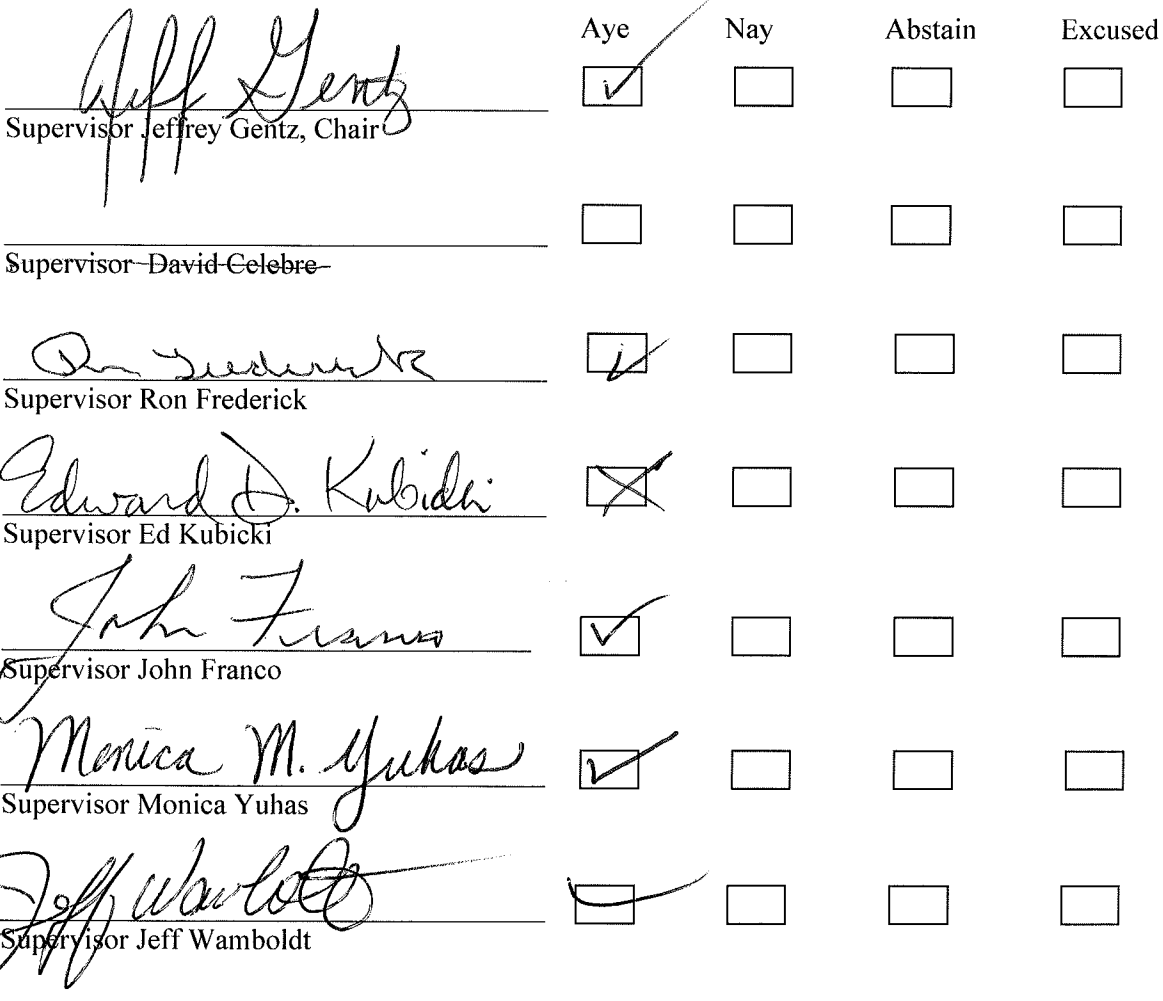 Aye Nay Abstain Excused
Jeff Gentz
Supervisor Jeffrey Gentz, Chair
Supervisor David Celebre
Ron Frederick
Supervisor Ron Frederick
Edward D. Kubicki
Supervisor Ed Kubicki
John Franco
Supervisor John Franco
Monica M. Yuhas
Supervisor Monica Yuhas
Jeff Wamboldt
Supervisor Jeff Wamboldt